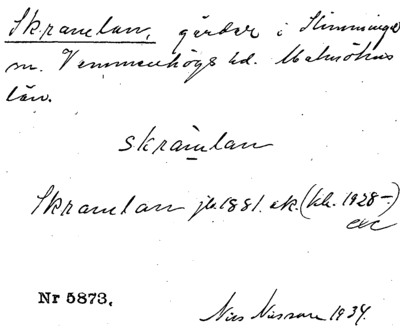 Skramlan, gärdar i Slimminge
sn. Vemmenhögs hd. Malmöhus
län.
skràmlan
Skramlan jb. 1881. ek. (kh. 1928-)
Nr 5873.
Nils Nilsson 1934.